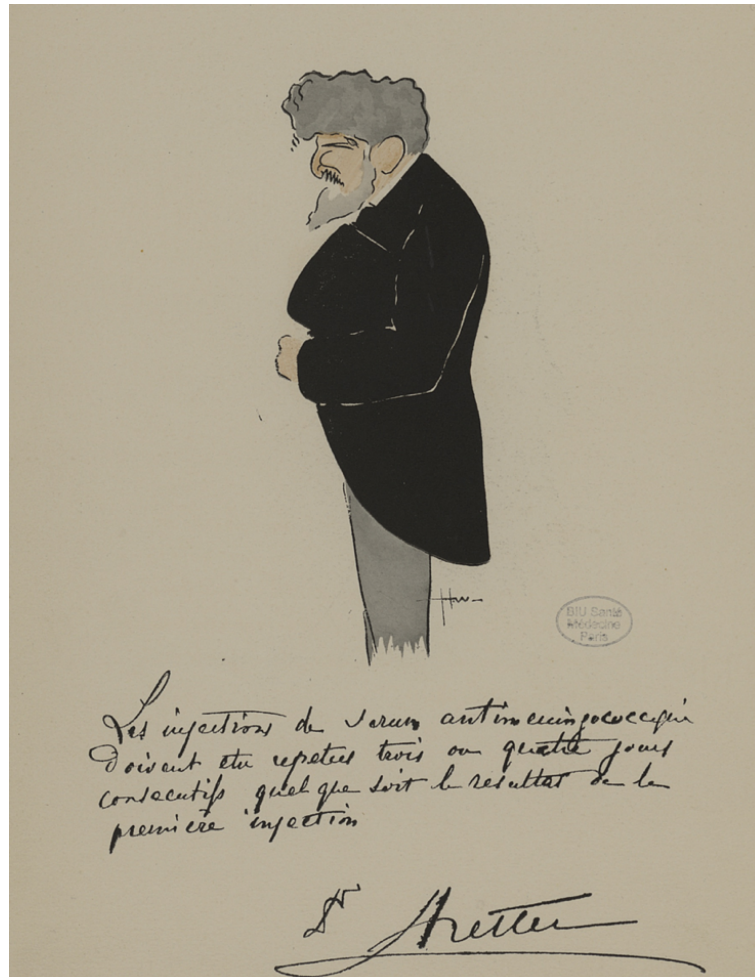 BIU Santé
Médecine
Paris
Les injections de serum antimeningococcique
doivent etre repetees trois ou quatre jours
consecutifs quel que soit le resultat de la
première injection
Dr Netter